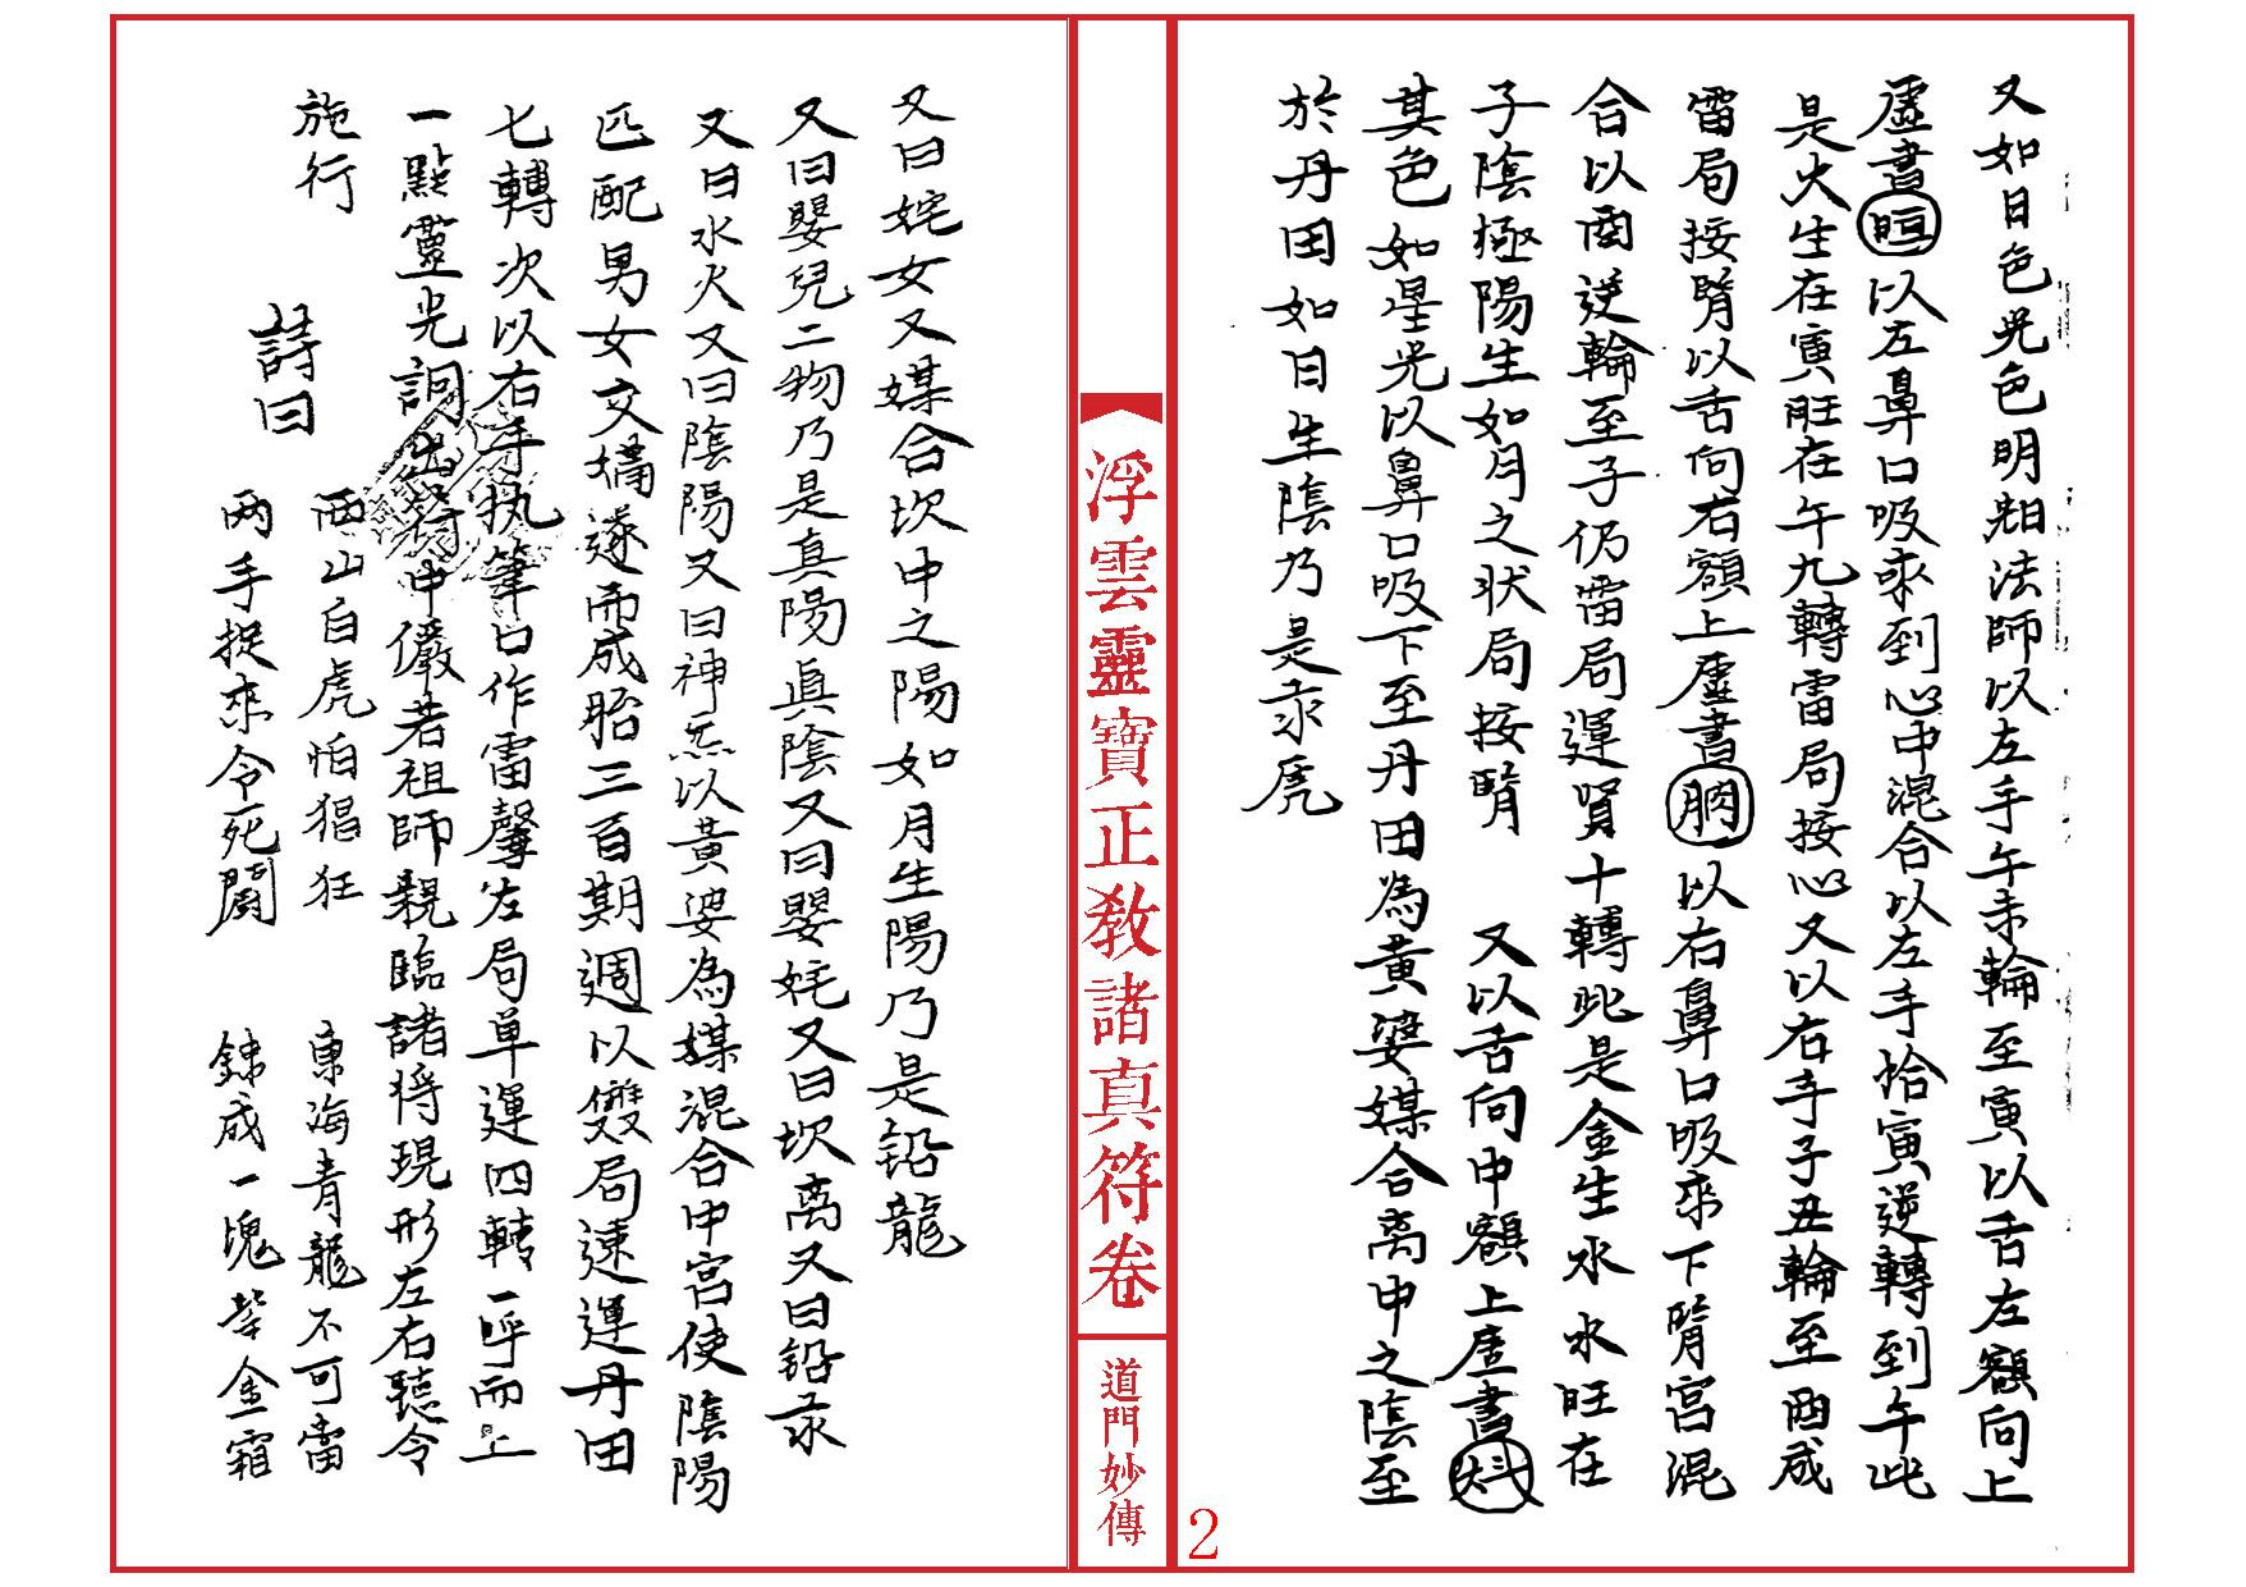 又如日色光色明朗法師以左手午未輪至寅以舌左額向上
虛書㫜以左鼻口吸來到心中混合以左手拾寅逆轉到午此
是火生在寅旺在午九轉雷局按心又以右手子丑輪至酉成
雷局按腎以舌向右額上虛書朒以右鼻口吸來下腎宮混
合以酉逆輪至子仍雷局運腎十轉此是金生水水旺在
子陰極陽生如月之狀局按腎 又以舌向中額上虛書
其色如星光以鼻口吸下至丹田為黃婆媒合离中之陰至
於丹田如日生陰乃是汞虎
浮雲靈寶正教諸真符卷
道門妙傳
2
又曰姹女又媒合坎中之陽如月生陽乃是鉛龍
又曰嬰兒二物乃是真陽真陰又曰嬰姹又曰坎离又曰鉛汞
又曰水火又曰陰陽又曰神炁以黃婆為媒混合中宮使陰陽
匹配男女交媾遂而成胎三百期週以雙局速運丹田
七轉次以右手执筆口作雷聲左局单運四轉一呼而上
一點靈光詞出符中儼若祖師親臨諸将現形左右聽令
施行
詩曰
西山白虎怕猖狂 東海青龍不可當
两手捉來令死鬪 鍊成一塊紫金霜